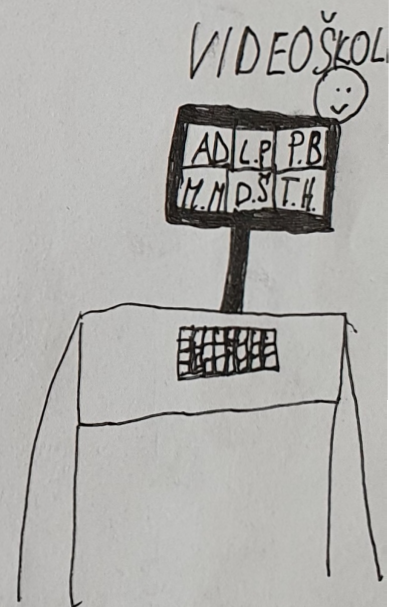 VIDEOŠKOL
AD L.P P.B
M.M D.Š T.H.